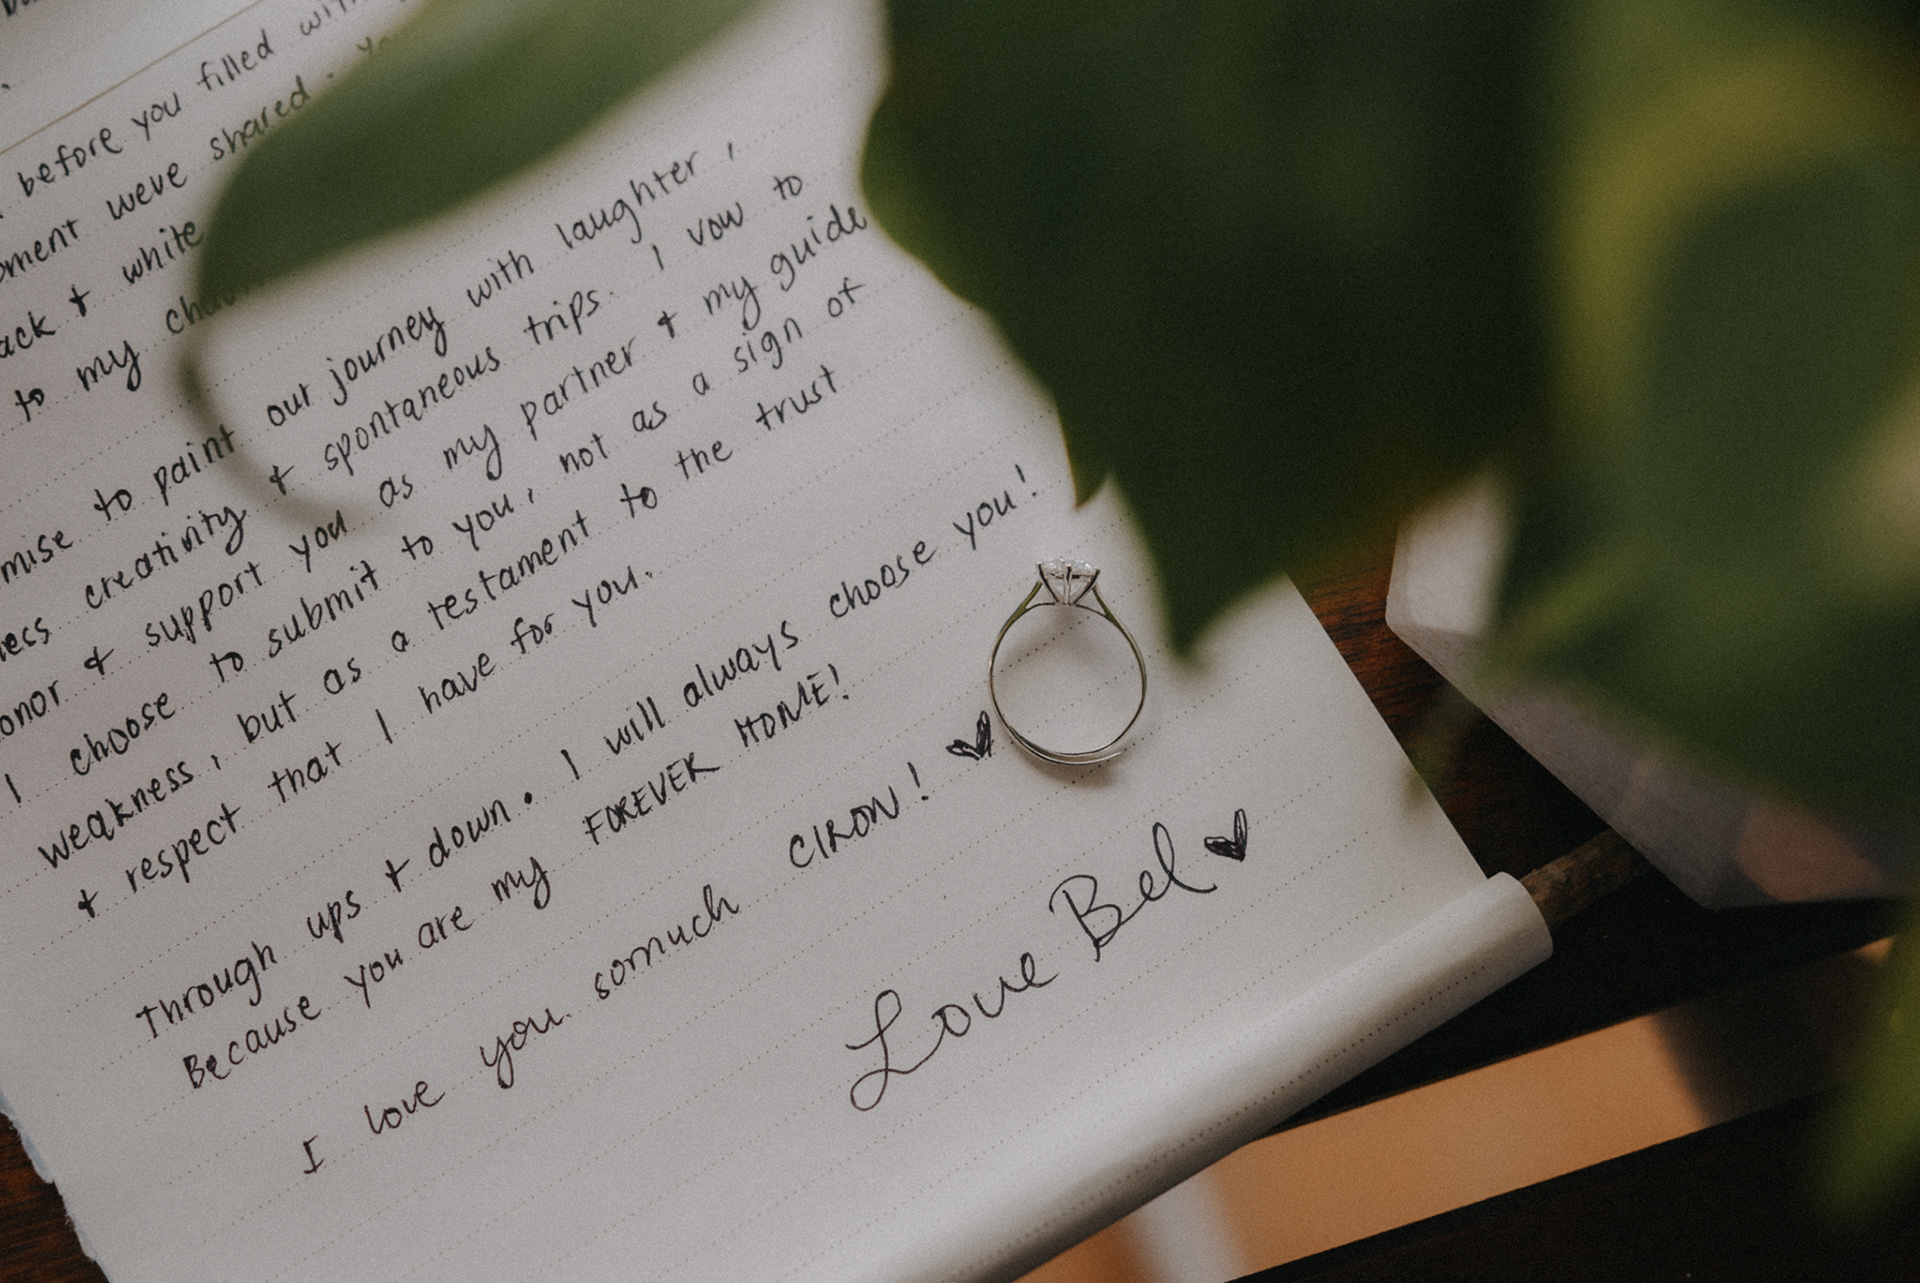 before you filled with
weve shared.
& white
to my
to paint our journey with laughter,
creativity & spontaneous trips. I vow to
& support you as my partner & my guide
I choose to submit to you, not as a sign of
weakness, but as a testament to the trust
& respect that I have for you.
Through ups & down. I will always choose you!
Because you are my FOREVER HOME!
I love you somuch CIRON!
Love Bel